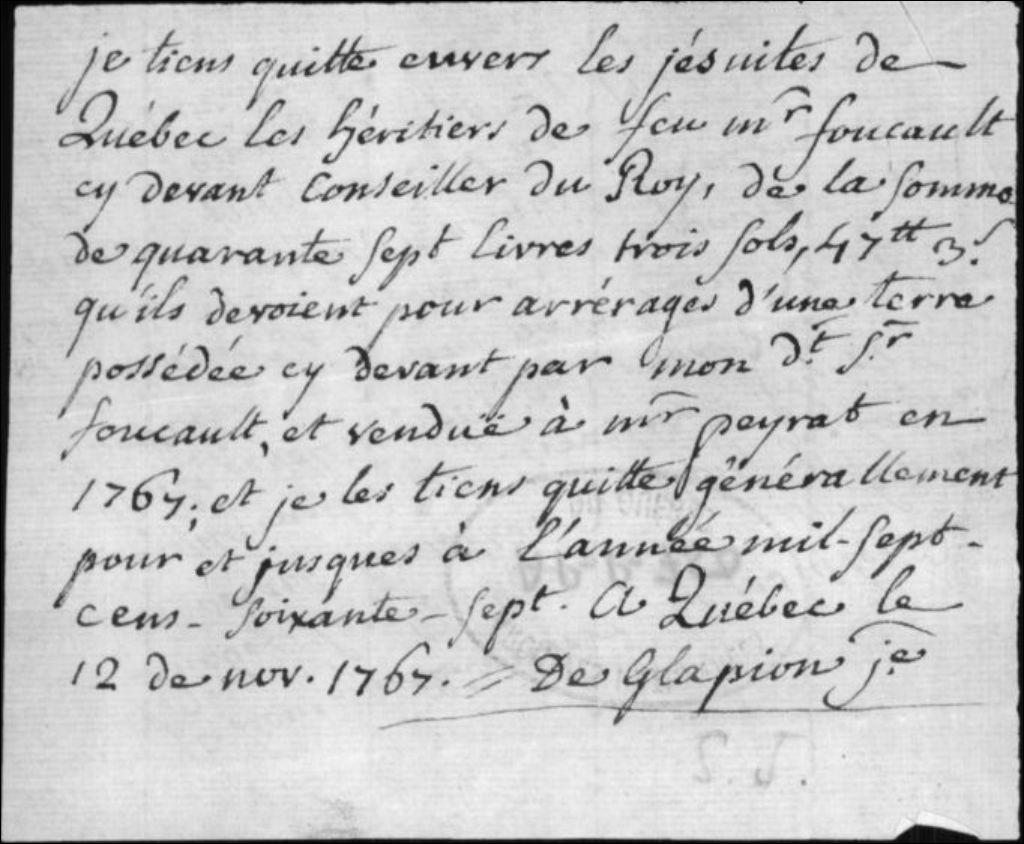 je tiens quitte envers les jésuites de
Québec les héritiers de feu mr foucault
cy devant Conseiller du Roy, de la somme
de quarante sept livres trois sols, 47tt 3.s
qu'ils devoient pour arrérages d'une terre
possédée cy devant par mon d.t s.r
foucault, et venduë à mr peyrat en
1767; et je les tiens quitte générallement
pour et jusques à l'année mil-sept-
cens-soixante-sept. A Québec le
12 de nov. 1767. = De Glapion j.e